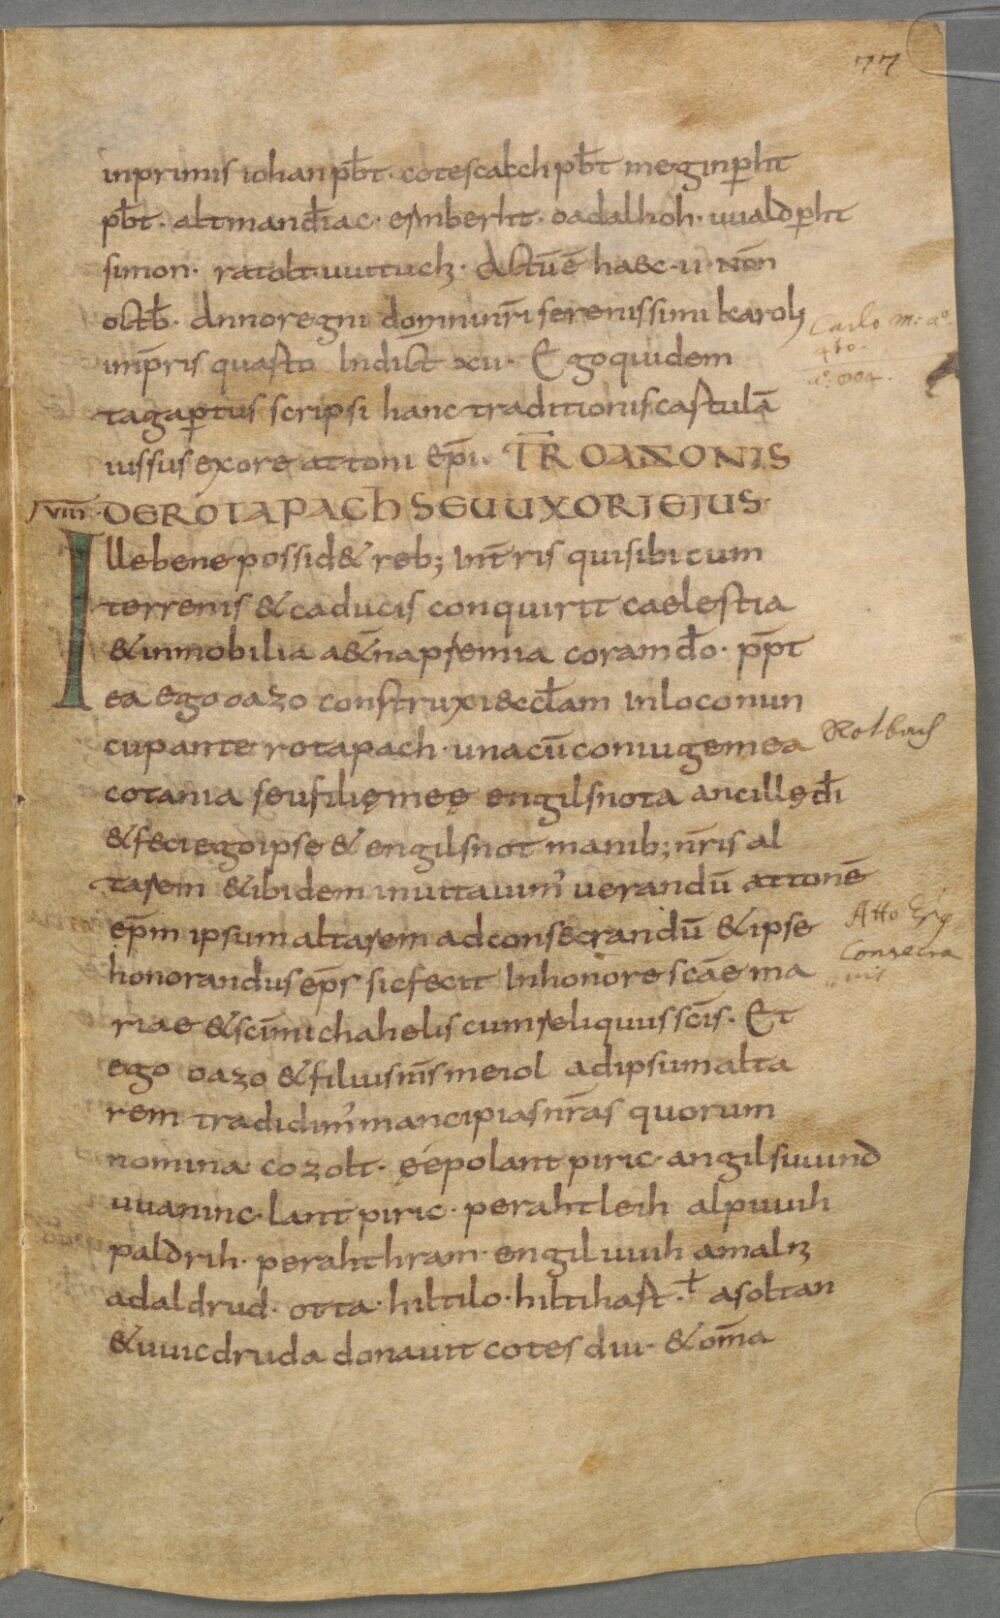 77
inprimis iohan pb̄t · cotescalch pb̄t meginp̄ht
pb̄t · altman diac̄ · erinberht · oadalhoh · uualdp̄ht
simon · ratolt · uuttuch · Actū ē haec · ii · nōn
octb̄ · Anno regni domni nr̄i serenissimi karoli
Carlo m: a°.
4to.
a°: 804.
imp̄ris quarto Indict xii · Ego quidem
tagap̄tus scripsi hanc traditionis cartulā
iussus ex ore attoni ep̄i. TR̄ OAZONIS
viiii · DE ROTAPACH SEU UXORI EIUS ·
Ille bene possid& reb; int̄ris qui sibi cum
terrenis & caducis conquirit caelestia
& inmobilia a&n̄a praemia coram dō · pp̄t
ea ego oazo construxi eccl̄am in loco nun
cupante rotapach · una cū coniuge mea
Rotbach
cotania seu filię męę engilsnota ancillę dī
& feci ego ipse & engilsnot manib; nr̄is al
tarem & ibidem inuitauim' uerandū attonē
Atto Ep̄s
ep̄m ipsum altarem ad consecrandū & ipse
Consecra
uit
honorandus ep̄s sic fecit In honore scāe ma
riae & scī michahelis cum reliquiis scīs · Et
ego oazo & filius m̄s meiol ad ipsum alta
rem tradidim' mancipias nr̄as quorum
nomina cozolt · gepolant piric · angilsuuind
uuaninc · lant piric · perahtleih alpuuih
paldrih · perahthram · engiluuih amalrih
adaldrud · otta · hiltilo · hiltihast · ł asoltan
& uuicdruda donauit cotesdiu · & om̄a